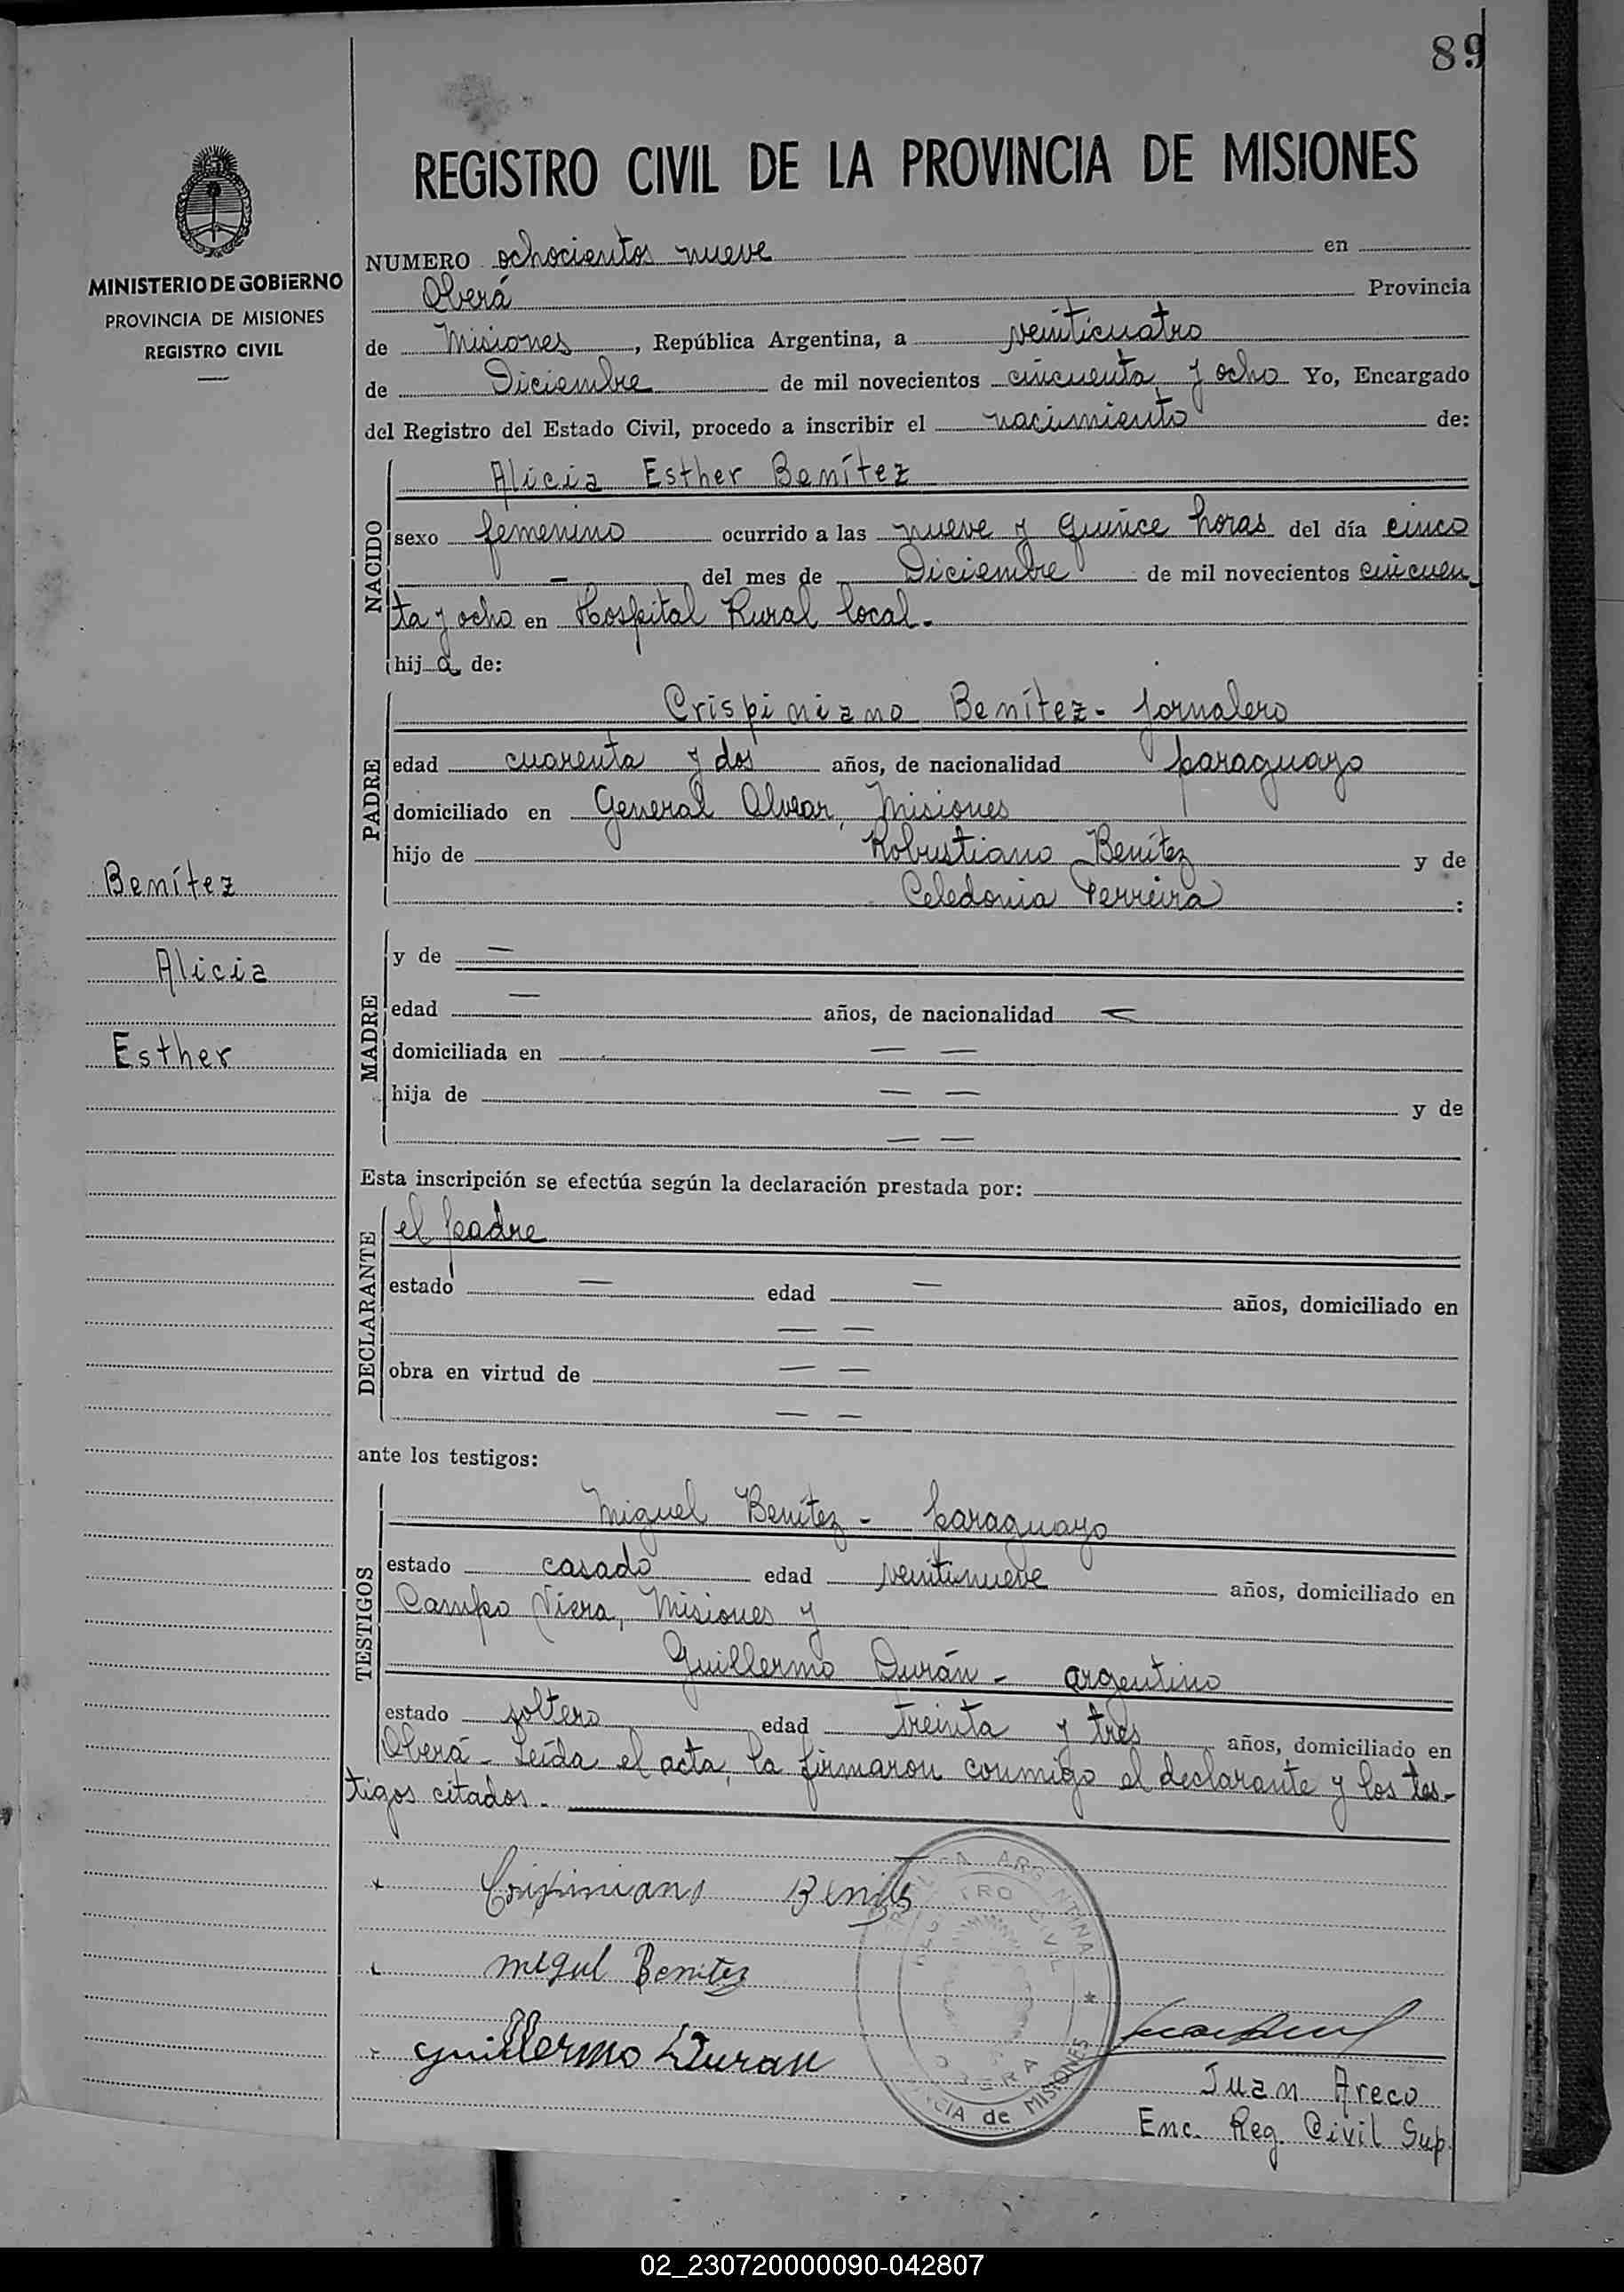 89
REGISTRO CIVIL DE LA PROVINCIA DE MISIONES
MINISTERIO DE GOBIERNO
PROVINCIA DE MISIONES
REGISTRO CIVIL
NUMERO ochocientos nueve en
Oberá Provincia
de Misiones, República Argentina, a veinticuatro
de Diciembre de mil novecientos cincuenta y ocho Yo, Encargado
del Registro del Estado Civil, procedo a inscribir el nacimiento de:
NACIDO
Alicia Esther Benítez
sexo femenino ocurrido a las nueve y quince horas del día cinco
— del mes de Diciembre de mil novecientos cincuen-
ta y ocho en Hospital Rural local.-
hija de:
PADRE
Crispiniano Benítez - jornalero
edad cuarenta y dos años, de nacionalidad paraguayo
domiciliado en General Alvear, Misiones
hijo de Robustiano Benítez y de
Celedonia Ferreira :
Benítez
Alicia
Esther
MADRE
y de —
edad — años, de nacionalidad —
domiciliada en — —
hija de — — y de
— —
Esta inscripción se efectúa según la declaración prestada por:
DECLARANTE
el padre
estado — edad — años, domiciliado en
— —
obra en virtud de — —
— —
ante los testigos:
TESTIGOS
Miguel Benítez - paraguayo
estado casado edad veintinueve años, domiciliado en
Campo Viera, Misiones y
Guillermo Durán - argentino
estado soltero edad treinta y tres años, domiciliado en
Oberá - Leída el acta, la firmaron conmigo el declarante y los tes-
tigos citados.-
Crispiniano Benites
Megul Benitez
Guillermo Duran
ARGENTINA
CIVIL
OBERA
de MISIONES
Juan Areco
Enc. Reg. Civil Sup.
02_230720000090-042807